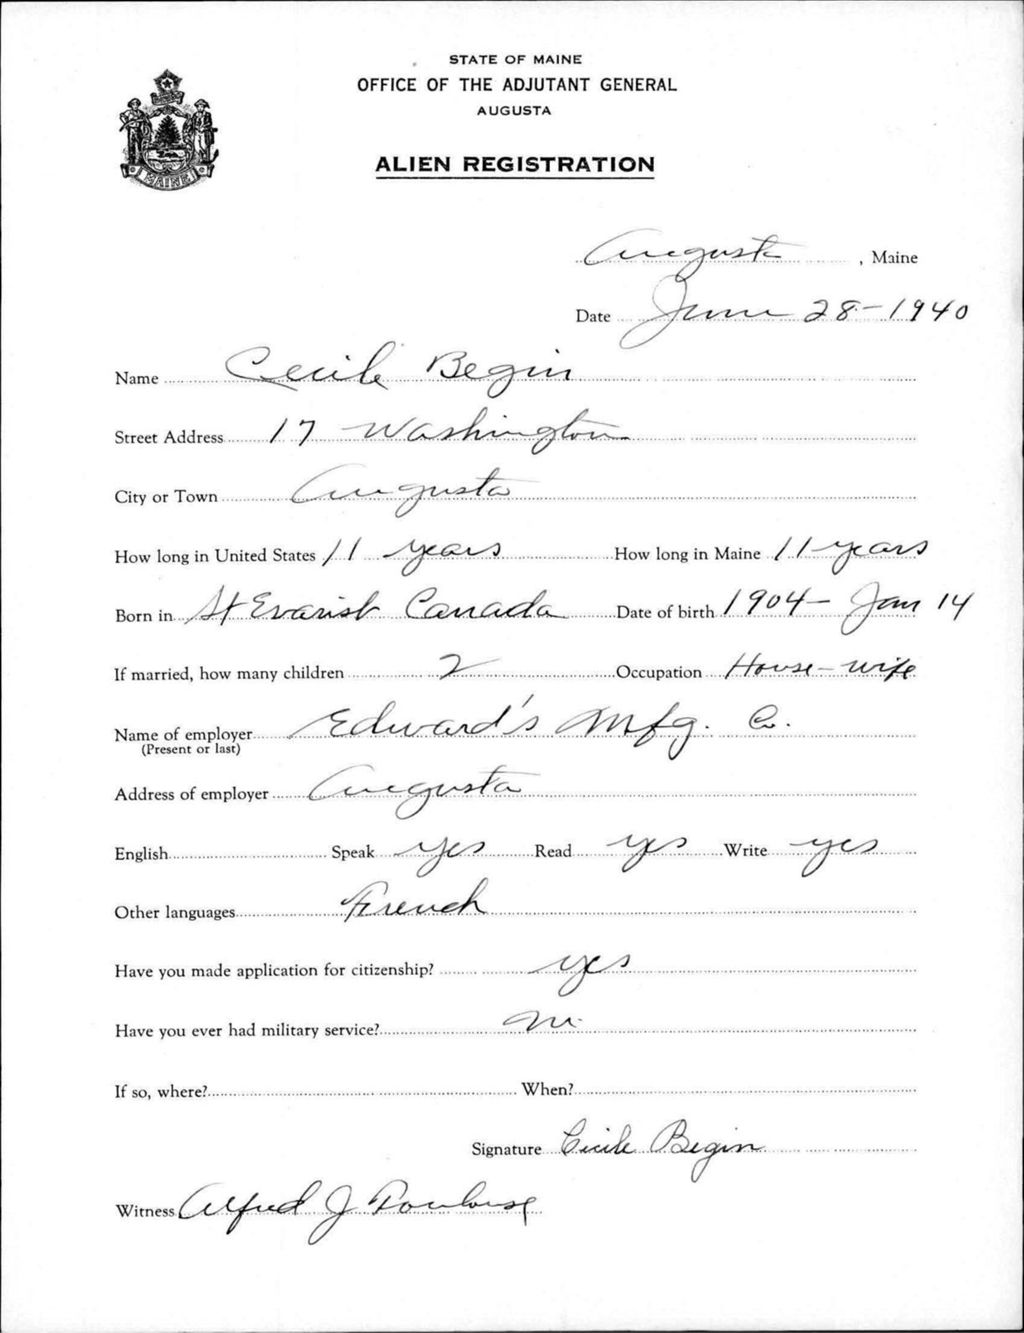 STATE OF MAINE
OFFICE OF THE ADJUTANT GENERAL
AUGUSTA
ALIEN REGISTRATION
MAINE
Augusta, Maine
Date June 28-1940
Name Cecile Begin
Street Address 17 Washington
City or Town Augusta
How long in United States 11 years How long in Maine 11 years
Born in St Evarist Canada Date of birth 1904- Jan 14
If married, how many children 2 Occupation House-wife
Name of employer Edward's Mfg. Co.
(Present or last)
Address of employer Augusta
English Speak yes Read yes Write yes
Other languages French
Have you made application for citizenship? yes
Have you ever had military service? no
If so, where? When?
Signature Cecile Begin
Witness Alfred J Toulouse